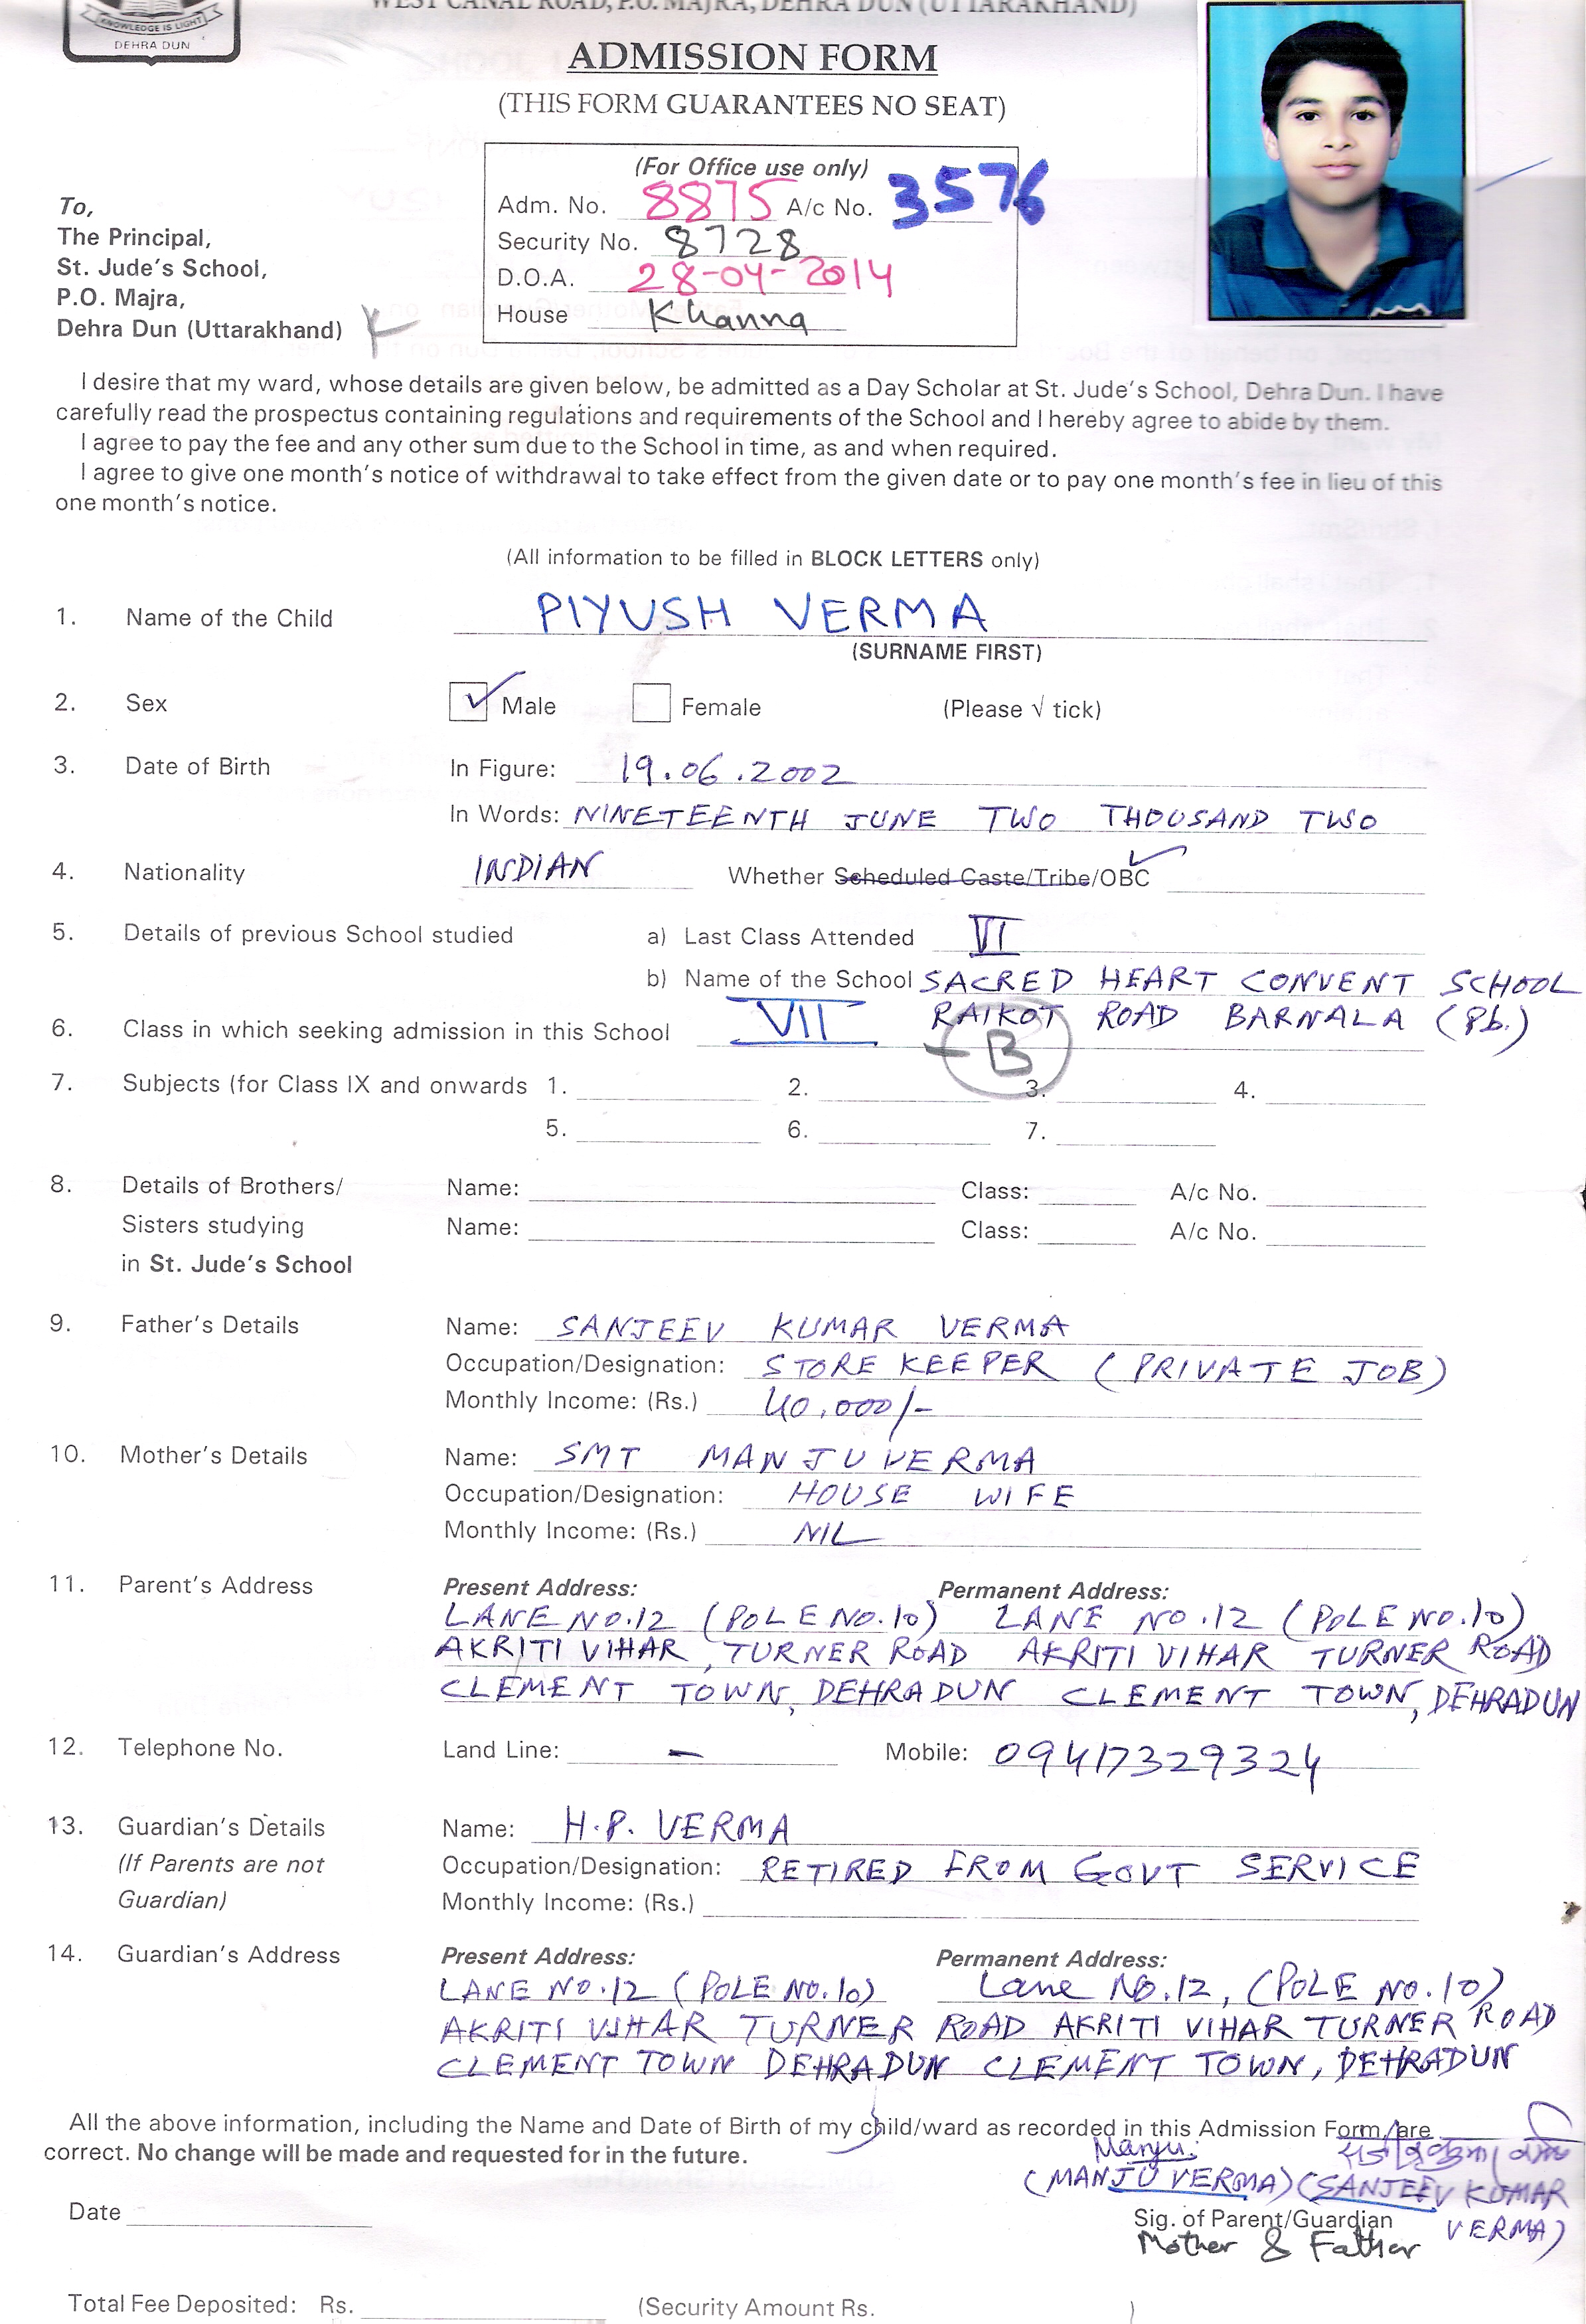 WEST CANAL ROAD, P.O. MAJRA, DEHRA DUN (UTTARAKHAND)
KNOWLEDGE IS LIGHT
DEHRA DUN
ADMISSION FORM
(THIS FORM GUARANTEES NO SEAT)
(For Office use only)
Adm. No. 8875 A/c No. 3576
Security No. 8728
D.O.A. 28-04-2014
House Khanna
To,
The Principal,
St. Jude's School,
P.O. Majra,
Dehra Dun (Uttarakhand)
I desire that my ward, whose details are given below, be admitted as a Day Scholar at St. Jude's School, Dehra Dun. I have
carefully read the prospectus containing regulations and requirements of the School and I hereby agree to abide by them.
I agree to pay the fee and any other sum due to the School in time, as and when required.
I agree to give one month's notice of withdrawal to take effect from the given date or to pay one month's fee in lieu of this
one month's notice.
(All information to be filled in BLOCK LETTERS only)
1. Name of the Child PIYUSH VERMA
(SURNAME FIRST)
2. Sex ✓ Male Female (Please √ tick)
3. Date of Birth In Figure: 19.06.2002
In Words: NINETEENTH JUNE TWO THOUSAND TWO
4. Nationality INDIAN Whether Scheduled Caste/Tribe/OBC ✓
5. Details of previous School studied a) Last Class Attended VI
b) Name of the School SACRED HEART CONVENT SCHOOL
RAIKOT ROAD BARNALA (Pb.)
6. Class in which seeking admission in this School VII - B
7. Subjects (for Class IX and onwards 1. 2. 3. 4.
5. 6. 7.
8. Details of Brothers/ Name: Class: A/c No.
Sisters studying Name: Class: A/c No.
in St. Jude's School
9. Father's Details Name: SANJEEV KUMAR VERMA
Occupation/Designation: STORE KEEPER (PRIVATE JOB)
Monthly Income: (Rs.) 40,000/-
10. Mother's Details Name: SMT MANJU VERMA
Occupation/Designation: HOUSE WIFE
Monthly Income: (Rs.) NIL
11. Parent's Address Present Address: Permanent Address:
LANE NO.12 (POLE NO.10) LANE NO.12 (POLE NO.10)
AKRITI VIHAR, TURNER ROAD AKRITI VIHAR TURNER ROAD
CLEMENT TOWN, DEHRADUN CLEMENT TOWN, DEHRADUN
12. Telephone No. Land Line: - Mobile: 09417329324
13. Guardian's Details Name: H.P. VERMA
(If Parents are not Occupation/Designation: RETIRED FROM GOVT SERVICE
Guardian) Monthly Income: (Rs.)
14. Guardian's Address Present Address: Permanent Address:
LANE NO.12 (POLE NO.10) Lane NO.12, (POLE NO.10)
AKRITI VIHAR TURNER ROAD AKRITI VIHAR TURNER ROAD
CLEMENT TOWN DEHRADUN CLEMENT TOWN, DEHRADUN
All the above information, including the Name and Date of Birth of my child/ward as recorded in this Admission Form, are
correct. No change will be made and requested for in the future.
Manju
(MANJU VERMA) (SANJEEV KUMAR
VERMA)
Date
Sig. of Parent/Guardian
Mother & Father
Total Fee Deposited: Rs. (Security Amount Rs. )